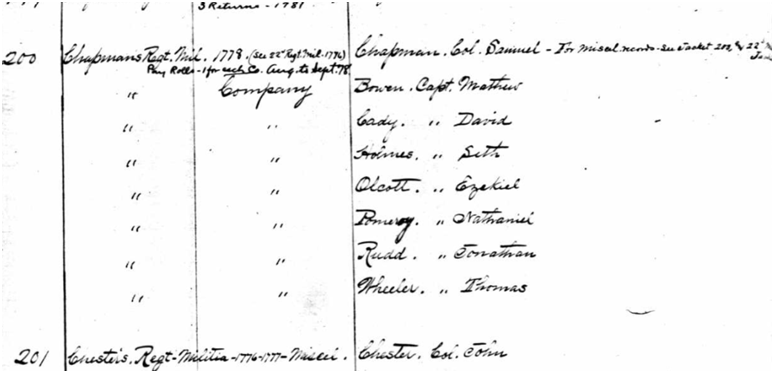 3 Returns - 1781
200 Chapman's Regt. Mil. 1778. (See 22d Regt. Mil. 1776) Chapman. Col. Samuel - For miscel. records - See Jacket 202, & 22d
Pay Rolls - 1 for each Co. Aug. to Sept. 78.
" Company Bowen. Capt. Mathew
" " Cady. " David
" " Holmes. " Seth
" " Olcott. " Ezekiel
" " Pomeroy. " Nathaniel
" " Rudd. " Jonathan
" " Wheeler. " Thomas
201 Chester's. Regt - Militia - 1776-1777 - Miscel. Chester. Col. John